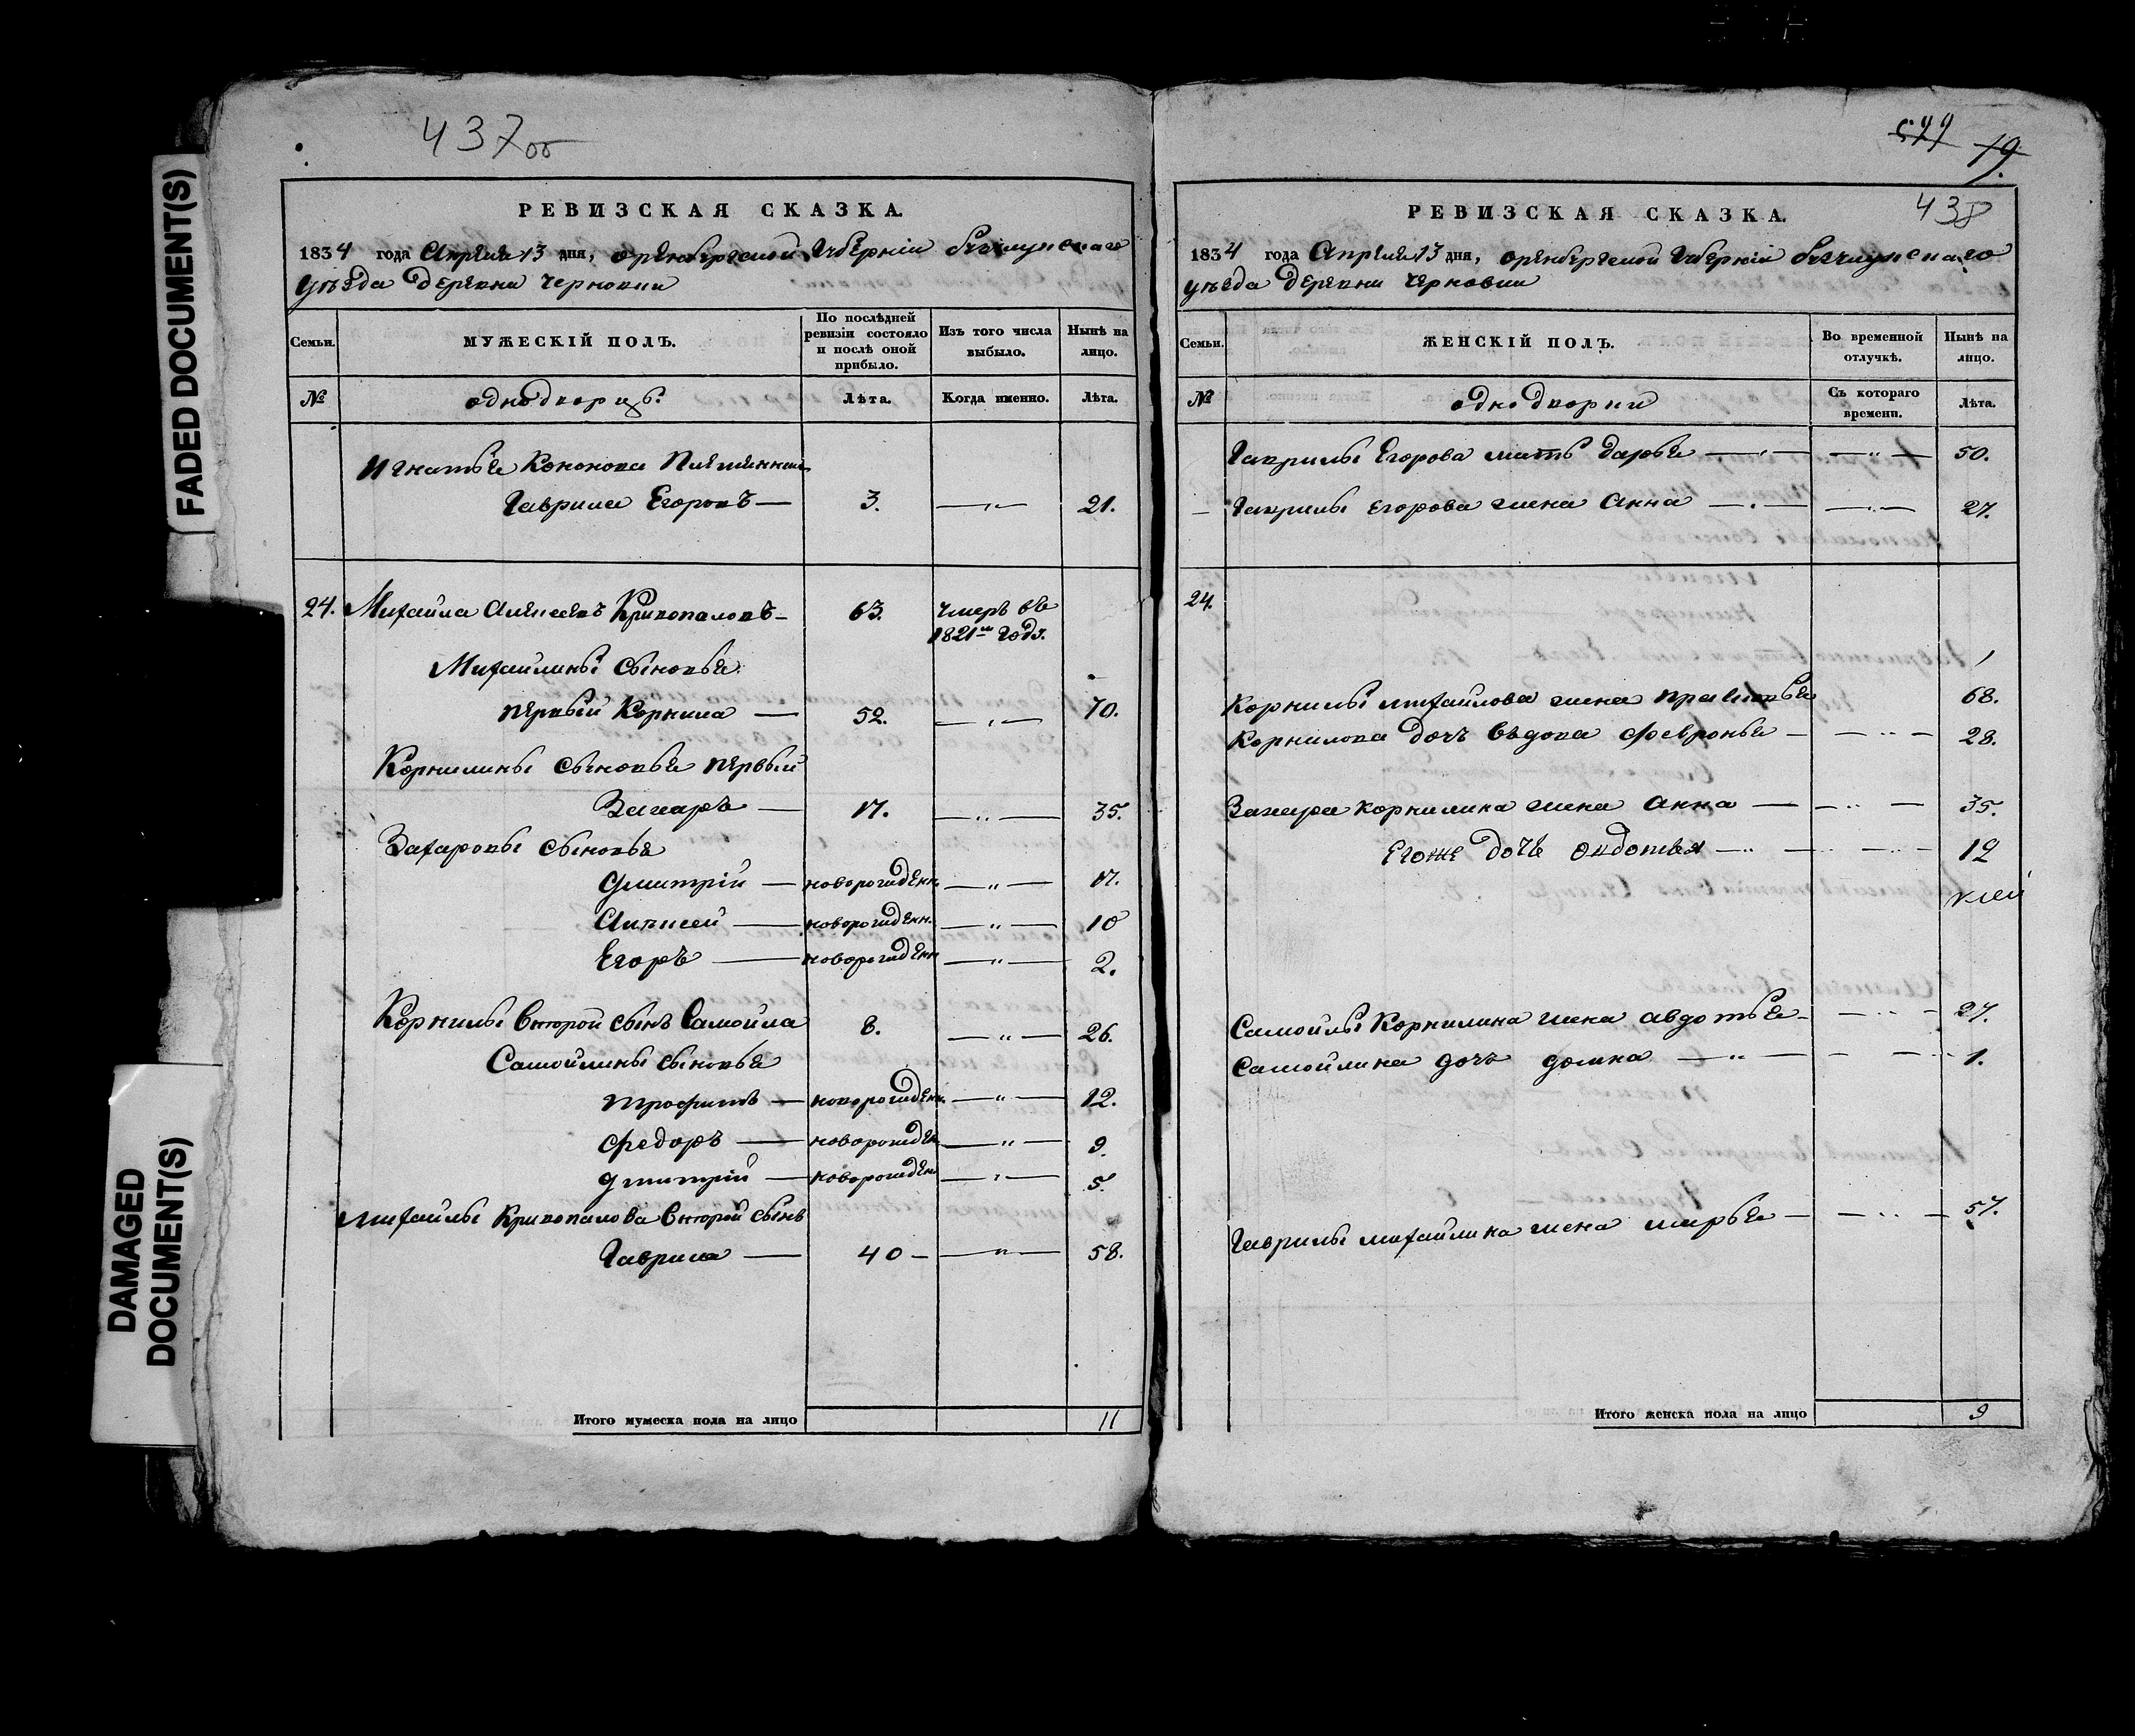 FADED DOCUMENT(S)
DAMAGED
DOCUMENT(S)
437 об
РЕВИЗСКАЯ СКАЗКА.
1834 года Апреля 13 дня, оренбургской Губернiи бузулукскаго
уѣзда деревни Черновки
Семьи.
МУЖЕСКІЙ ПОЛЪ.
По послѣдней
ревизіи состояло
и послѣ оной
прибыло.
Изъ того числа
выбыло.
Нынѣ на
лицо.
№
однодворцъ.
Лѣта.
Когда именно.
Лѣта.
Игнатья Кононова Племянник
Гаврила Егоровъ — 3. — 21.
24. Михайла Алексеевъ Кривопаловъ — 63. умеръ въ
1821м годѣ.
Михайлины сыновья
первый Корнила — 52. — 70.
Корнилины сыновья первый
Захаръ — 17. — 35.
Захаровы сыновья
Дмитрій — новорожденн. — 17.
Алексей — новорожденн. — 10
Егоръ — новорожденн — 2.
Корнилы второй сынъ Самойла 8. — 26.
Самойлины сыновья
Трофимъ — новорожденн. — 12.
Федоръ — новорожден — 9.
Дмитрій — новорожден — 5.
Михайлы Кривопалова второй сынъ
Гаврила — 40 — 58.
Итого мужеска пола на лицо 11
19.
438
РЕВИЗСКАЯ СКАЗКА.
1834 года Апреля 13 дня, оренбургской Губернiи бузулукскаго
уѣзда деревни Черновки
Семьи.
ЖЕНСКІЙ ПОЛЪ.
Во временной
отлучкѣ.
Нынѣ на
лицо.
№
однодворки
Съ котораго
времени.
Лѣта.
Гаврилы Егорова мать Дарья — 50.
Гаврилы Егорова жена Анна — 27.
24.
Корнилы михайлова жена 68.
Корнилова дочъ вѣдова Февронья — 28.
Захара корнилина жена Анна — 35.
Егоже дочь овдотья — 12
Самойлы Корнилина жена авдотья — 27.
Самойлина дочъ домна — 1.
Гаврилы михайлина жена марья — 57.
Итого женска пола на лицо 9